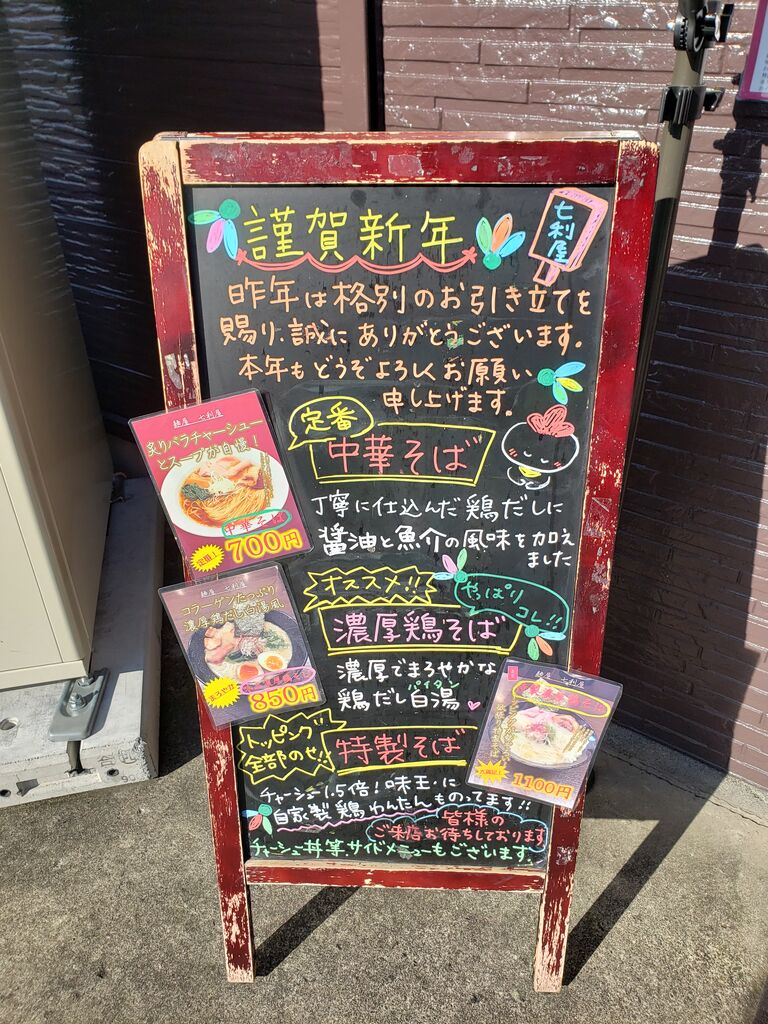 謹賀新年
七利屋
昨年は格別のお引き立てを
賜り、誠にありがとうございます。
本年もどうぞよろしくお願い
申し上げます。
定番
中華そば
丁寧に仕込んだ鶏だしに
醤油と魚介の風味を加え
ました
麺屋 七利屋
炙りバラチャーシュー
とスープが自慢!
中華そば
定番!
700円
オススメ!!
やっぱり
コレ!!
濃厚鶏そば
濃厚でまろやかな
鶏だし白湯
パイタン
麺屋 七利屋
コラーゲンたっぷり
濃厚鶏だし白湯風
まろやか
850円
トッピング
全部のせ!!
特製そば
1100円
チャーシュー1.5倍!味玉に
自家製鶏わんたんものってます!!
皆様の
ご来店お待ちしております
チャーシュー丼等、サイドメニューもございます。